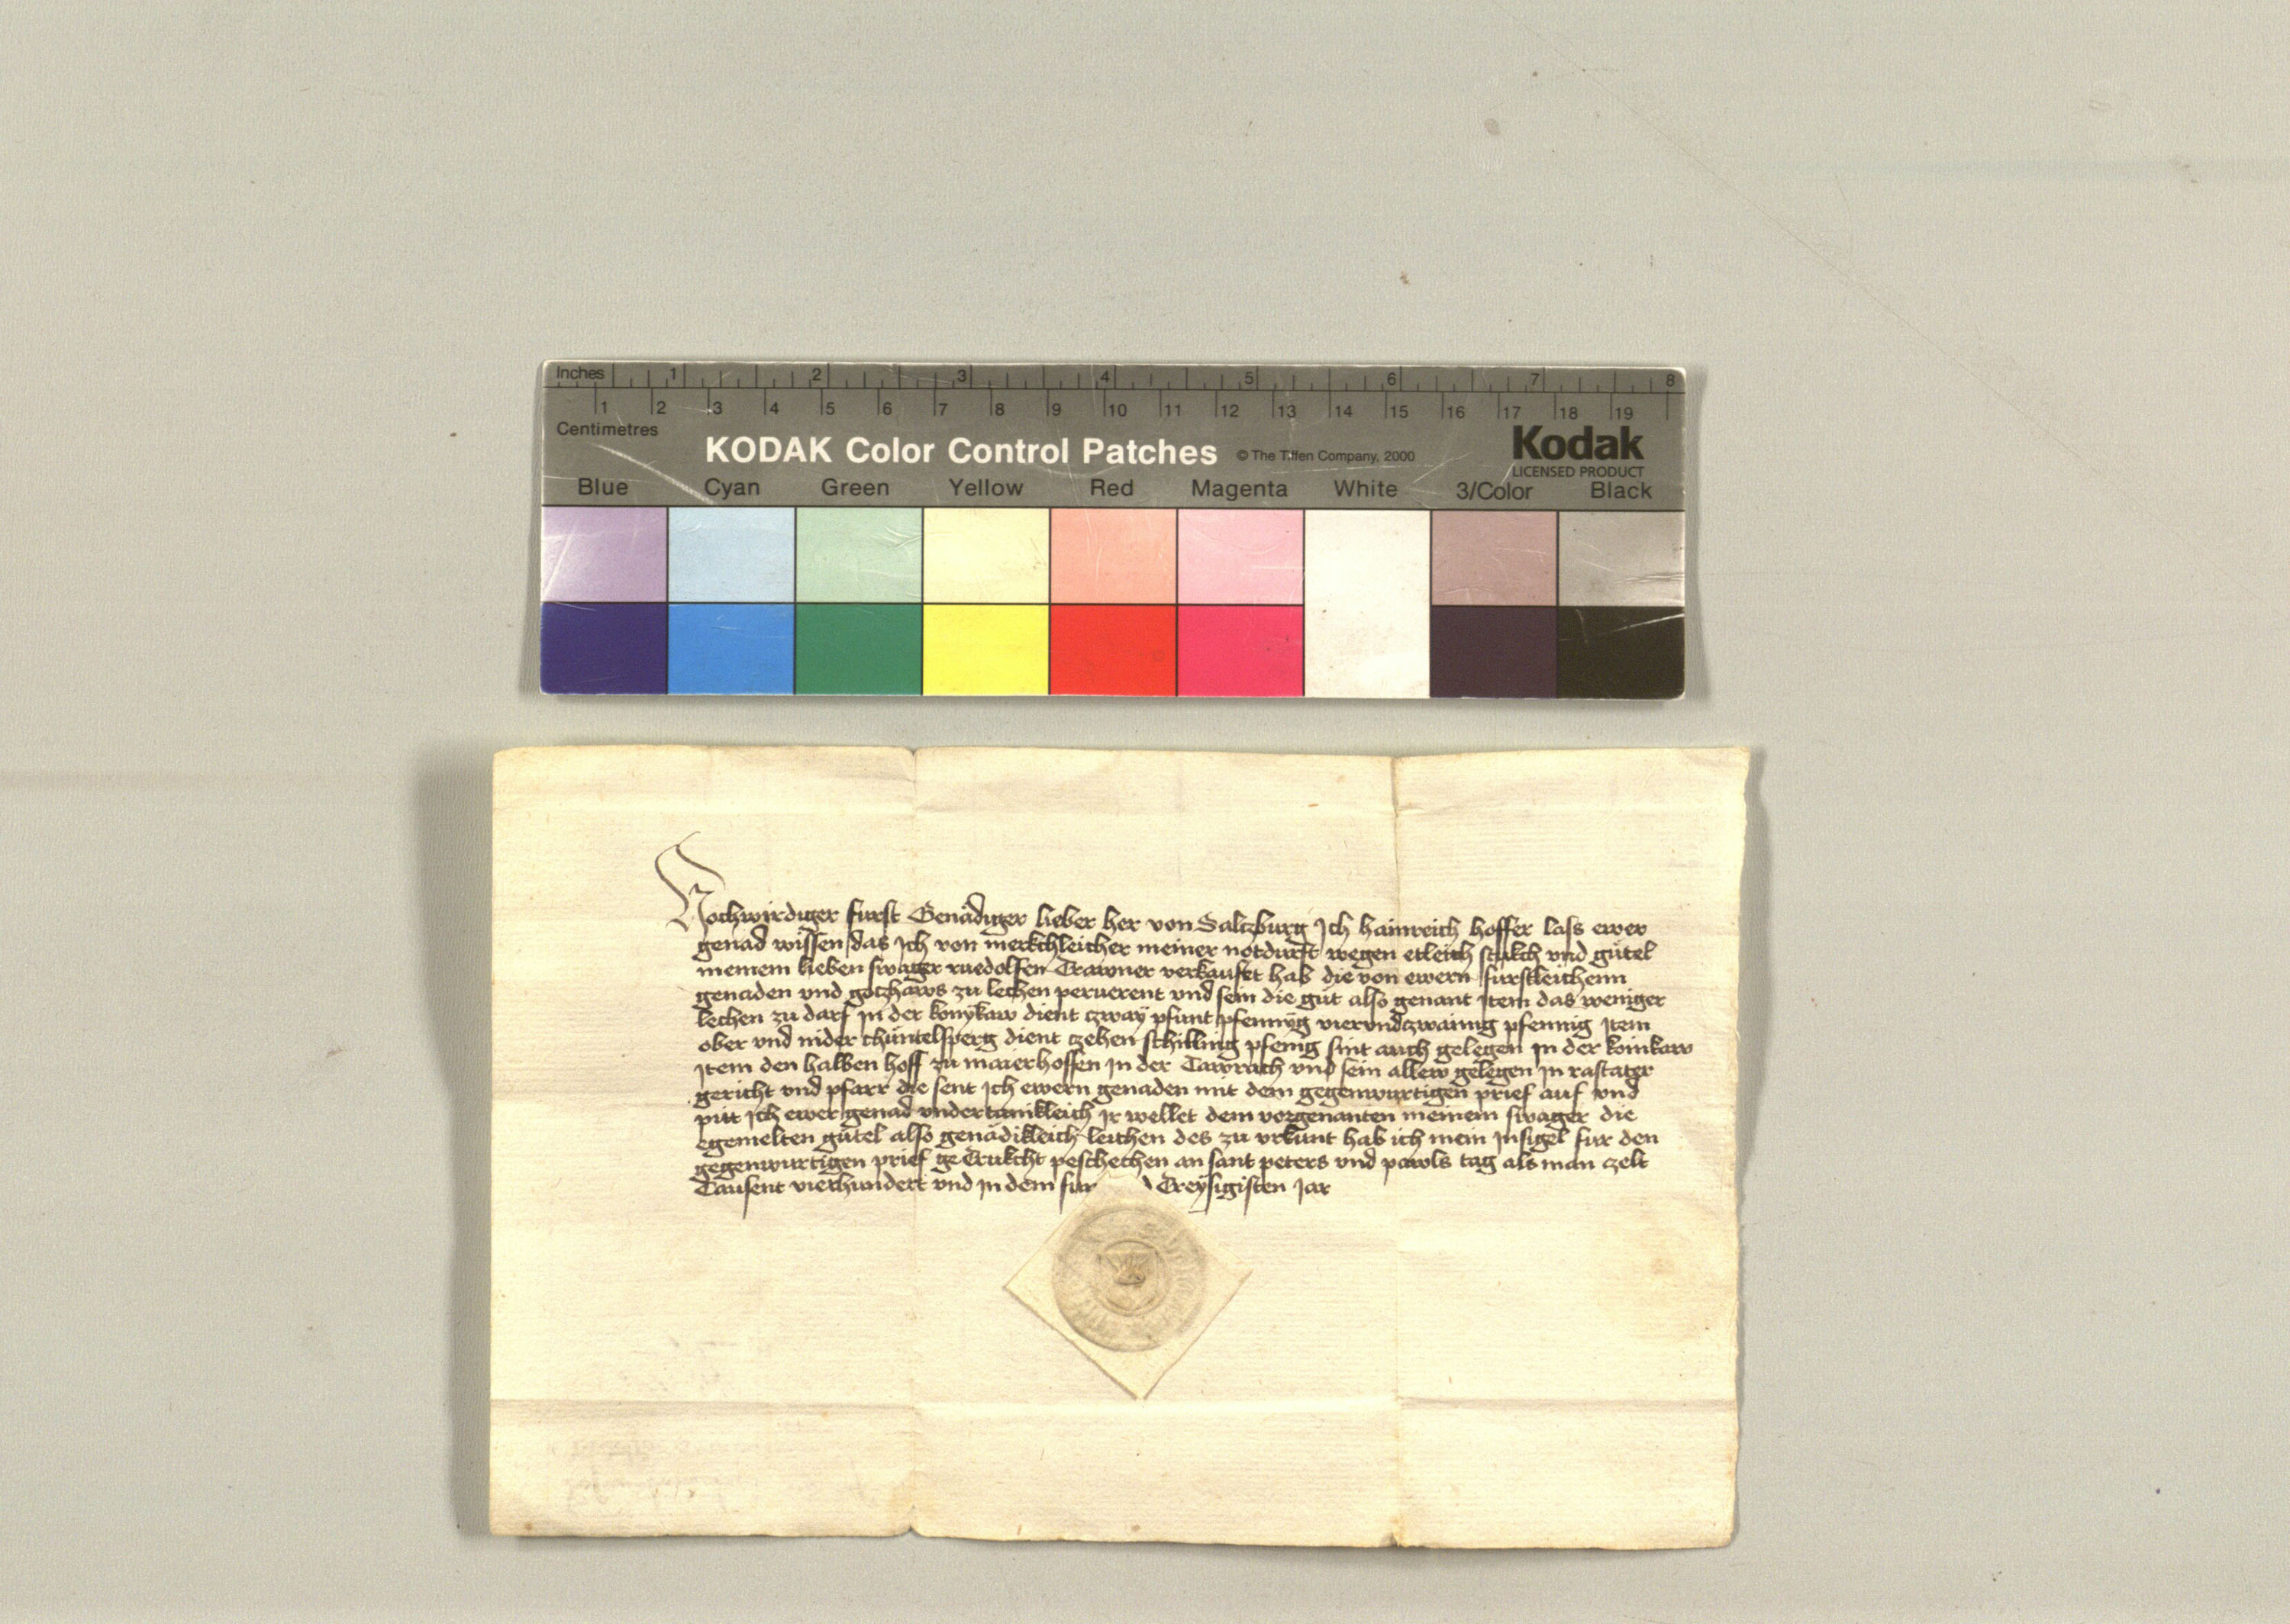 Inches 1 2 3 4 5 6 7 8
1 2 3 4 5 6 7 8 9 10 11 12 13 14 15 16 17 18 19
Centimetres
KODAK Color Control Patches © The Tiffen Company, 2000 Kodak
LICENSED PRODUCT
Blue Cyan Green Yellow Red Magenta White 3/Color Black
Hochwirdiger furst Genädiger lieber her von Saltzburg Ich hainreich hoffer lass ewer
genad wissen das Ich von merkchleicher meiner notdurft wegen etleich stukch vnd gütel
meinem lieben swager ruedolfen Trawner verkauft hab die von ewern furstleichenn
genaden vnd gotzhaws zu lechen peruerent vnd sein die gut also genant Item das weniger
lechen zu darf in der konykaw dient zway pfunt pfennyg viervndzwainig pfennig Item
ober vnd nider chüntelsperg dient zehen schilling pfenig sint auch gelegen in der koinkaw
Item den halben hoff zu maierhoffen in der Tawrach vnd sein allew gelegen in rastater
gericht vnd pfarr die sent Ich ewern genaden mit dem gegenwurtigen prief auf vnd
pitt Ich ewer genad vndertanikleich Ir wellet dem vorgenanten meinem swager die
egemelten gütel also genädikleich leichen des zu vrkunt hab ich mein Insigel fur den
gegenwurtigen prief geTrukcht peschechen an sant peters vnd pawls tag als man czelt
Tausent vierhundert vnd in dem fur Treysigisten Jar